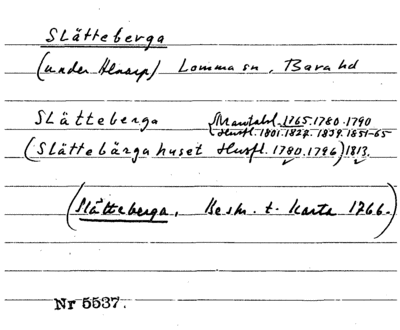 Slätteberga
(under Alnarp) Lomma sn, Bara hd
Slätteberga (Mantalsl. 1765. 1780. 1790
Husfl. 1801. 1827. 1839. 1851-65
(Slättebärga huset Husfl. 1780. 1796) 1813.
(Slätteberga. Beskr. t. Karta 1766.)
Nr 5537.